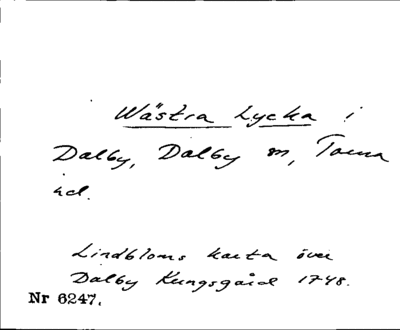 Wästra Lycka i
Dalby, Dalby sn, Torna
hd.
Lindbloms karta över
Dalby Kungsgård 1748.
Nr 6247.